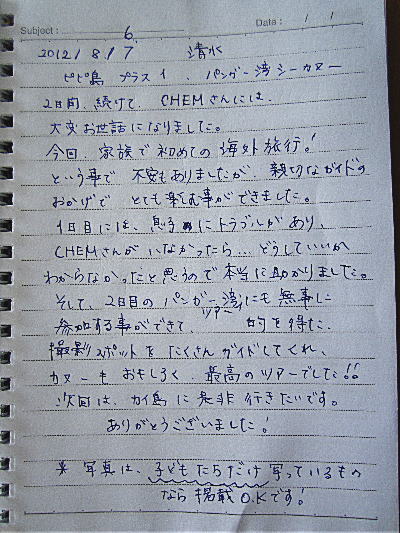 Subject : 6. Date : / /
2012/8/7 清水
ピピ島 プラス1、パンガー湾シーカヌー
2日間、続けて、CHEMさんには、
大変お世話になりました。
今回、家族で初めての海外旅行!
という事で 不安もありましたが、親切なガイドの
おかげで とても楽しむ事ができました。
1日目には、息子にトラブルがあり、
CHEMさんがいなかったら…どうしていいか
わからなかったと思うので本当に助かりました。
そして、2日目のパンガー湾ツアーにも無事に
参加する事ができて、 的を得た、
撮影スポットをたくさんガイドしてくれ、
カヌーもおもしろく、最高のツアーでした!!
次回は、カイ島に是非行きたいです。
ありがとうございました!
※ 写真は、子どもたちだけ写っているもの
なら掲載O.Kです!